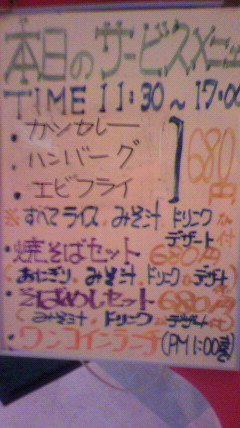 本日のサービスメニュー
TIME 11:30~17:00
・カツカレー
・ハンバーグ
・エビフライ
680円
※すべてライス、みそ汁、ドリンク
デザート付
・焼そばセット 680円
(おにぎり、みそ汁、ドリンク、デザート
・そばめしセット 680円
(みそ汁、ドリンク、デザート
・ワンコインランチ (PM1:00まで